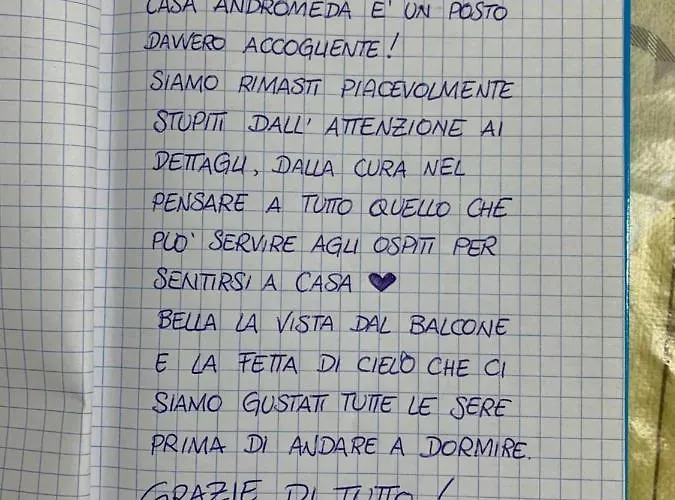 CASA ANDROMEDA E' UN POSTO
DAVVERO ACCOGLIENTE!
SIAMO RIMASTI PIACEVOLMENTE
STUPITI DALL' ATTENZIONE AI
DETTAGLI, DALLA CURA NEL
PENSARE A TUTTO QUELLO CHE
PUO' SERVIRE AGLI OSPITI PER
SENTIRSI A CASA ♥
BELLA LA VISTA DAL BALCONE
E LA FETTA DI CIELO CHE CI
SIAMO GUSTATI TUTTE LE SERE
PRIMA DI ANDARE A DORMIRE.
GRAZIE DI TUTTO!